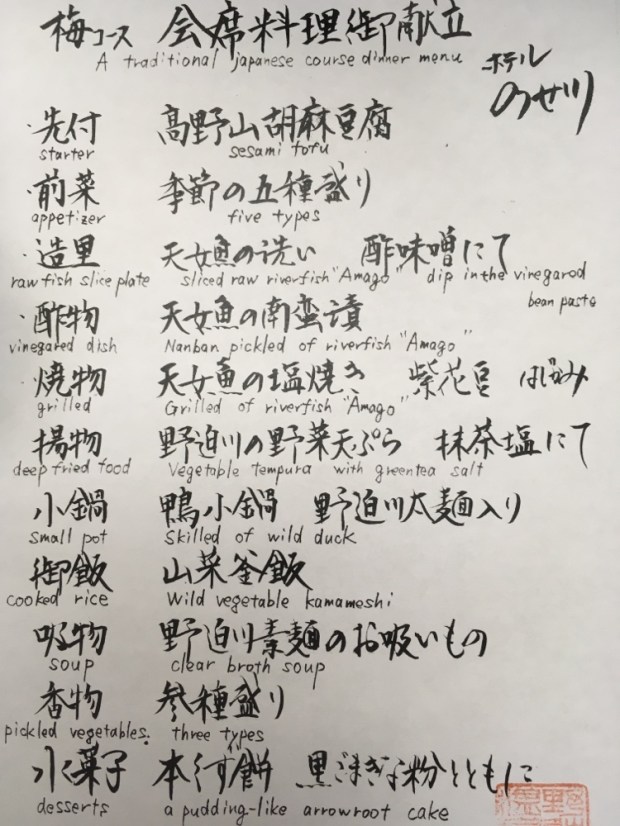 梅コース 会席料理御献立
A traditional japanese course dinner menu
ホテル
のせ川
・先付 高野山胡麻豆腐
starter sesami tofu
・前菜 季節の五種盛り
appetizer five types
・造里 天女魚の洗い 酢味噌にて
raw fish slice plate sliced raw riverfish "Amago" dip in the vinegared
bean paste
・酢物 天女魚の南蛮漬
vinegared dish Nanban pickled of riverfish "Amago"
・焼物 天女魚の塩焼き 紫花豆 はじかみ
grilled Grilled of riverfish "Amago"
揚物 野迫川の野菜天ぷら 抹茶塩にて
deep fried food Vegetable tempura with greentea salt
小鍋 鴨小鍋 野迫川太麺入り
small pot Skilled of wild duck
御飯 山菜釜飯
cooked rice Wild vegetable kamameshi
吸物 野迫川素麺のお吸いもの
soup clear broth soup
香物 参種盛り
pickled vegetables. three types
水菓子 本くず餅 黒ごまきな粉とともに
desserts a pudding-like arrowroot cake